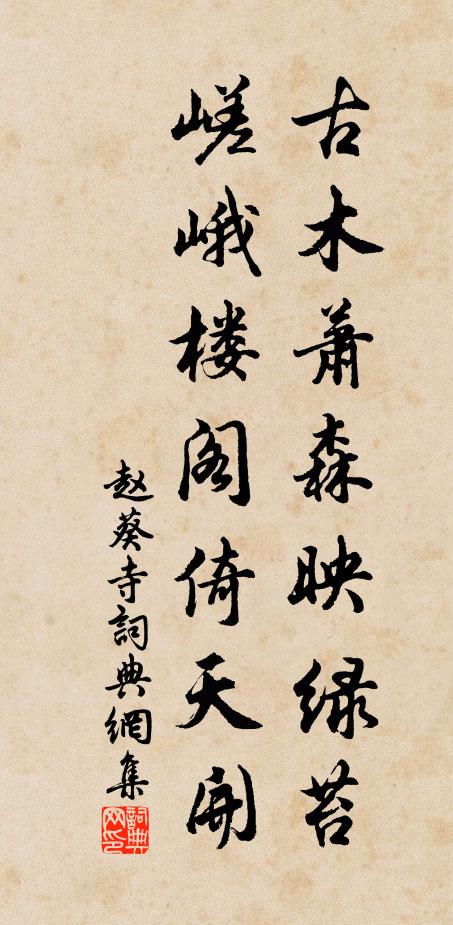 古木萧森映绿苔
嵯峨楼阁倚天开
赵葵寺詞典網集
詞典網印